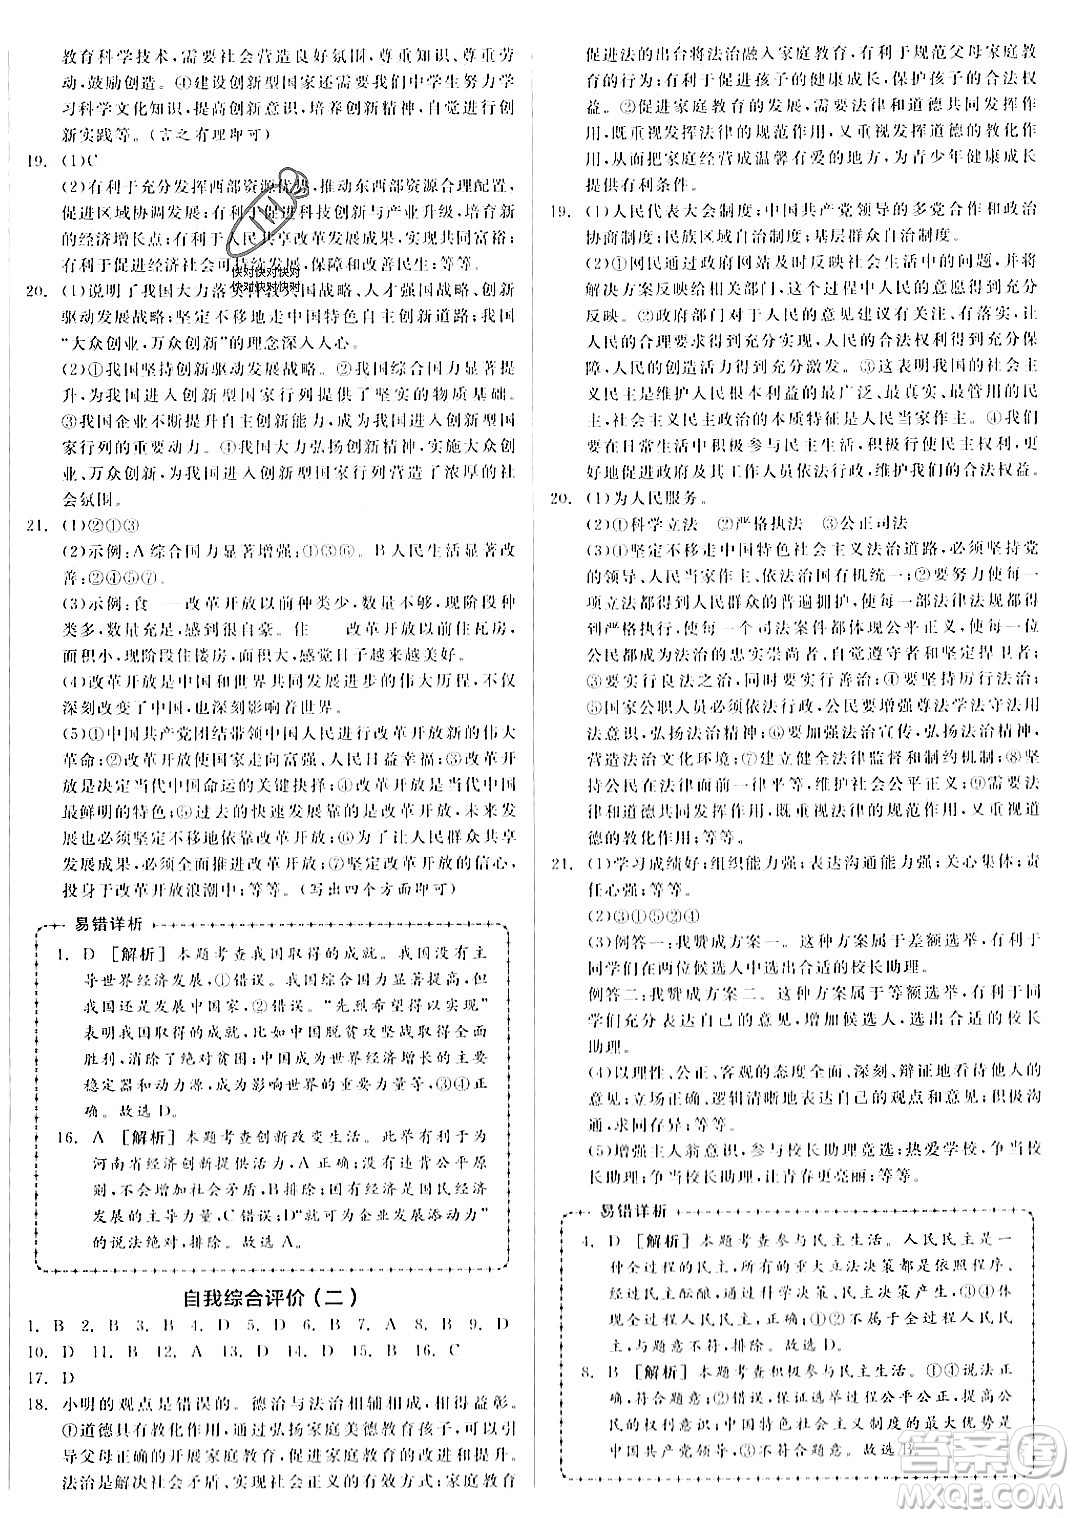 教育科学技术，需要社会营造良好氛围，尊重知识，尊重劳
动，鼓励创造。①建设创新型国家需要我们中学生努力学
习科学文化知识，提高创新意识，培养创新精神，自觉进行创
新实践等。（言之有理即可）
19. (1)C
(2)有利于充分发挥西部资源优势，推动东西部资源合理配置，
促进区域协调发展；有利于促进科技创新与产业升级，培育新
的经济增长点；有利于人民共享改革发展成果，实现共同富裕；
有利于促进经济社会可持续发展，保障和改善民生；等等。
20. (1)说明了我国大力落实科教兴国战略、人才强国战略、创新
驱动发展战略；坚定不移地走中国特色自主创新道路；我国
“大众创业，万众创新”的理念深入人心。
(2)①我国坚持创新驱动发展战略。②我国综合国力显著提
升，为我国进入创新型国家行列提供了坚实的物质基础。
③我国企业不断提升自主创新能力，成为我国进入创新型国
家行列的重要动力。④我国大力弘扬创新精神，实施大众创
业、万众创新，为我国进入创新型国家行列营造了浓厚的社
会氛围。
21. (1)②①③
(2)示例：A 综合国力显著增强：①③⑥ B 人民生活显著改
善：②④⑤⑦。
(3)示例：食 — 改革开放以前种类少，数量不够，现阶段种
类多，数量充足，感到很自豪。住 改革开放以前住瓦房，
面积小，现阶段住楼房，面积大，感觉日子越来越美好。
(4)改革开放是中国和世界共同发展进步的伟大历程，不仅
深刻改变了中国，也深刻影响着世界。
(5)①中国共产党团结带领中国人民进行改革开放新的伟大
革命，推动使国家走向富强，人民走向幸福；②、③改革开
放是决定当代中国命运的关键抉择；④改革开放是当代中国
最鲜明的特色；⑤过去的快速发展靠的是改革开放，未来的发
展也必须坚定不移地依靠改革开放；⑥为了让人民群众共享
发展成果，必须全面推进改革开放；⑦坚定改革开放的信心，
投身于改革开放浪潮中；等等。（写出四个方面即可）
易错详析
1. D 【解析】本题考查我国取得的成就。我国没有主
导世界经济发展，①错误。我国综合国力显著提高，但
仍然是发展中国家，②错误。“先烈希望得以实现”
表明我国取得的成就，比如中国脱贫攻坚战取得全面
胜利，消除了绝对贫困；中国成为世界经济增长的主要
稳定器和动力源，成为影响世界的重要力量等，③④正
确。故选 D。
16. A 【解析】本题考查创新改变生活。此举有利于为
河南省经济创新提供活力，A 正确；没有违背公平原
则，不会加深社会矛盾，B 排除；国有经济是国民经济
发展的主导力量，C 错误；D“就可以为发展添动力”
的说法绝对，排除。故选 A。
自我综合评价(二)
1. B 2. B 3. B 4. D 5. D 6. B 7. A 8. B 9. D
10. D 11. B 12. A 13. D 14. D 15. D 16. C
17. D
18. 小明的观点是错误的。德治与法治相辅相成，相得益彰。
①道德具有教化作用，通过弘扬家庭美德教育孩子，可以引
导父母正确的开展家庭教育，促进家庭教育的开展。②厉行
法治是解决社会矛盾、实现社会正义的有效方式；家庭教育
促进法的出台将法治融入家庭教育，有利于规范父母家庭教
育的行为，有利于促进孩子的健康成长，保护孩子的合法权
益。③促进家庭教育的发展，需要法律和道德共同发挥作
用，既重视发挥法律的规范作用，又重视发挥道德的教化作
用，从而把家庭经营成温馨有爱的地方，为青少年健康成长
提供有利条件。
19. (1)人民代表大会制度；中国共产党领导的多党合作和政治
协商制度；民族区域自治制度；基层群众自治制度。
(2)①网民通过政府网站及时反映社会生活中的问题，并将
解决方案反映给相关部门，这个过程中人民的意愿得到充分
反映。②政府部门对人民的意见建议有关注、有采纳、有保
障，人民的权利得到充分实现。③人民的积极性得到充分发
挥，人民的创造活力得到充分激发。这表明我国的社会主义
民主是维护人民根本利益的最广泛、最真实、最管用的民
主，社会主义民主政治的本质特征是人民当家作主。④我们
要在日常生活中积极参与民主生活，积极行使民主权利，更
好地促进政府及其工作人员依法行政，维护我们的合法权益。
20. (1)为人民服务。
(2)①科学立法 ②严格执法 ③公正司法
(3)①坚定不移走中国特色社会主义法治道路，必须坚持党
的领导、人民当家作主、依法治国有机统一；②要努力使每一
项立法都得到人民群众的普遍拥护，使每一部法律法规都得
到严格执行，使每一个司法案件都体现公平正义，使每一位
公民都成为法治的忠实崇尚者、自觉遵守者和坚定捍卫者；
③要实现良法之治，同时要实行善治；④要坚持厉行法治；
⑤国家公职人员必须依法行政，带头尊法学法守法用法，带头
弘扬法治精神；⑥要加强法治宣传，弘扬法治精神，营
造法治文化环境；⑦健全法律监督和制约机制；⑧坚
持法律面前一律平等，维护社会公平正义；⑨坚持法
律和道德共同发挥作用，既重视法律的规范作用，又重视道
德的教化作用；等等。
21. (1)学习成绩好；组织能力强；表达沟通能力强；关心集体；责
任心强；等等。
(2)③①⑤②④
(3)例答一：我赞成方案一。这种方案属于差额选举，有利于
同学们在两位候选人中选出合适的校长助理。
例答二：我赞成方案二。这种方案属于等额选举，有利于同
学们充分表达自己的意见，增加候选人，选出合适的校长
助理。
(4)以理性、公正、客观的态度全面、深刻、辩证地看待他人的
意见；立场正确、逻辑清晰地表达自己的观点和意见；相互沟通，
求同存异；等等。
(5)增强主人翁意识，参与校长助理竞选；热爱学校，争当校
长助理；争当校长助理，让青春更亮丽；等等。
易错详析
4. D 【解析】本题考查参与民主生活。人民民主是一
种全过程的民主，重大立法决策是依照程序、经过
民主酝酿，通过科学决策、民主决策产生，③④符合
题意。
民主，与题意不符，排除。故选 D。
8. B 【解析】本题考查积极参与民主生活。①④说法正
确，符合题意；②错误，保证选举过程公平公正，提高公
民的权利意识；中国特色社会主义制度的最大优势是
中国共产党领导，③不符合题意。故选 B。
快对快对快对
快对快对快对
答案圈
MXQE.COM